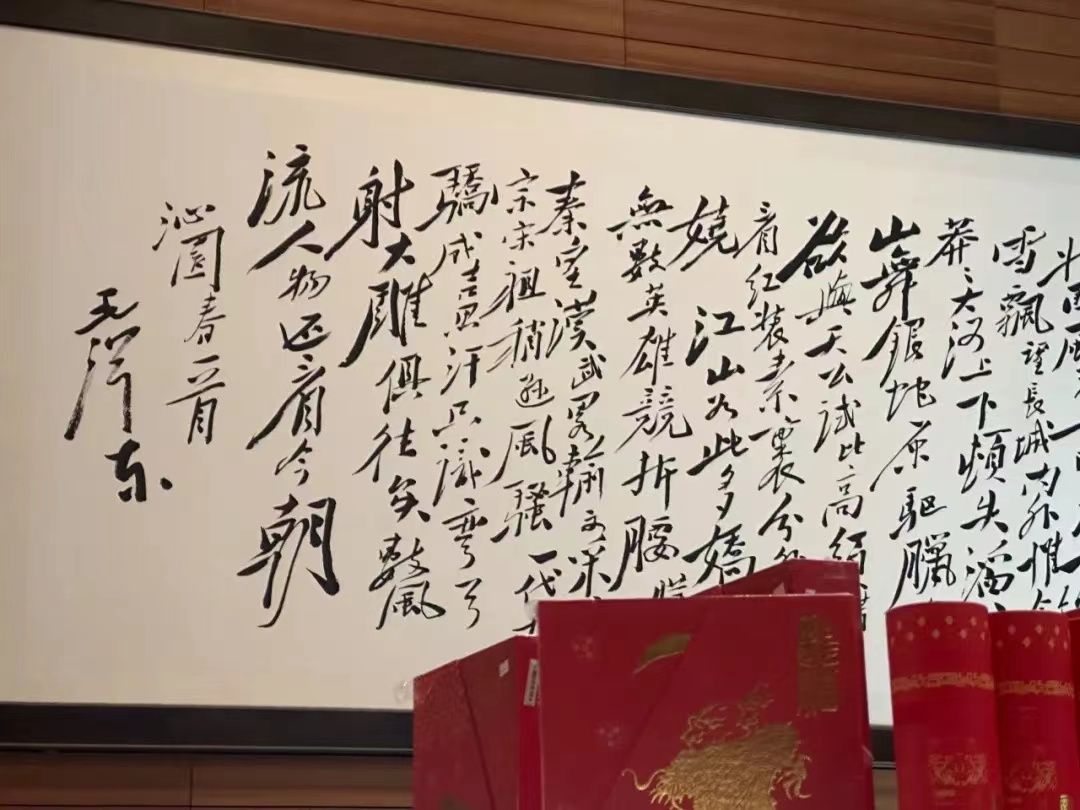 雪飄望長城内外惟餘
莽々大河上下頓失滔
山舞銀蛇原驅臘
欲與天公試比高須晴
看紅装素裹分外
嬈 江山如此多嬌
無數英雄競折腰
秦皇漢武畧輸文采
宗宋祖稍遜風騷 一代
驕成吉思汗只識彎弓
射大雕俱往矣數風
流人物还看今朝
沁園春一首
毛澤東